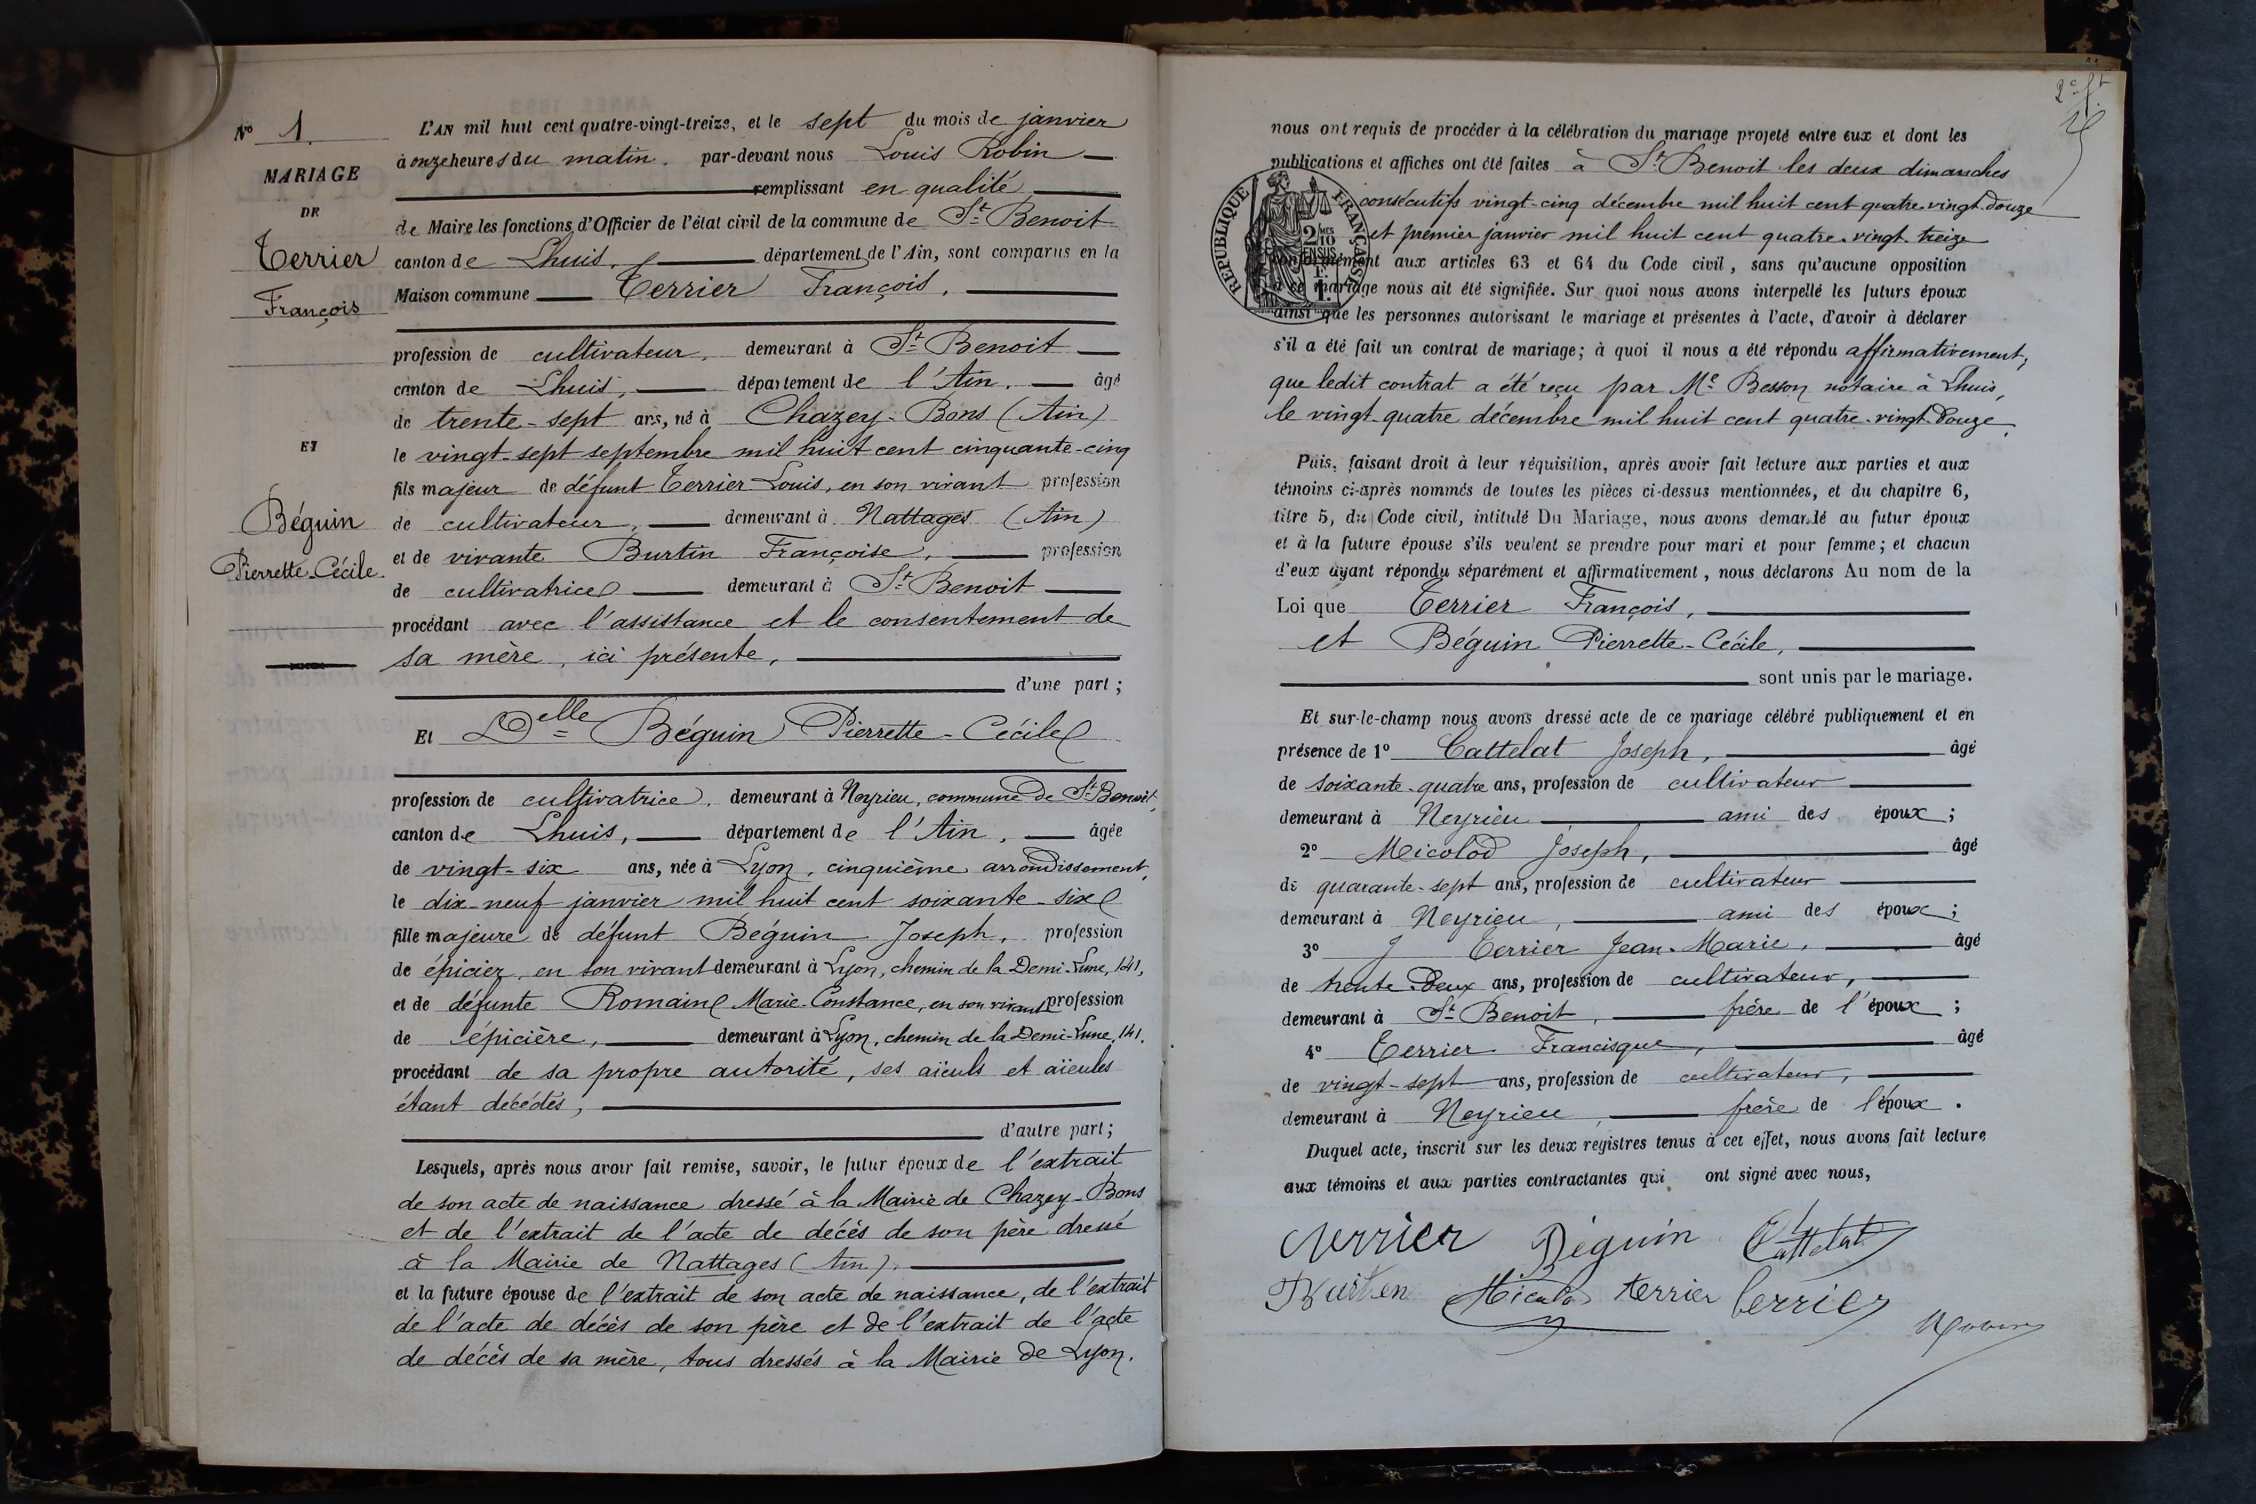 Nº 1.
MARIAGE
DE
Terrier
François
ET
Béguin
Pierrette-Cécile.
L'AN mil huit cent quatre-vingt-treize, et le sept du mois de janvier
à onze heures du matin. par-devant nous Louis Robin
remplissant en qualité
de Maire les fonctions d'Officier de l'état civil de la commune de St Benoit
canton de Lhuis, département de l'Ain, sont comparus en la
Maison commune Terrier François,
profession de cultivateur, demeurant à St Benoit
canton de Lhuis, département de l'Ain, âgé
de trente-sept ans, né à Chazey-Bons (Ain)
le vingt-sept septembre mil huit cent cinquante-cinq
fils majeur de défunt Terrier Louis, en son vivant profession
de cultivateur, demeurant à Nattages (Ain)
et de vivante Burtin Françoise, profession
de cultivatrice demeurant à St Benoit
procédant avec l'assistance et le consentement de
sa mère, ici présente,
d'une part;
Et Delle Béguin Pierrette-Cécile
profession de cultivatrice, demeurant à Neyrieu, commune de St Benoit,
canton de Lhuis, département de l'Ain, âgée
de vingt-six ans, née à Lyon, cinquième arrondissement,
le dix-neuf janvier mil huit cent soixante-six
fille majeure de défunt Béguin Joseph, profession
de épicier, en son vivant demeurant à Lyon, chemin de la Demi-Lune, 141,
et de défunte Romain Marie-Constance, en son vivant profession
de épicière, demeurant à Lyon, chemin de la Demi-Lune, 141.
procédant de sa propre autorité, ses aïeuls et aïeules
étant décédés,
d'autre part;
Lesquels, après nous avoir fait remise, savoir, le futur époux de l'extrait
de son acte de naissance dressé à la Mairie de Chazey-Bons
et de l'extrait de l'acte de décès de son père dressé
à la Mairie de Nattages (Ain),
et la future épouse de l'extrait de son acte de naissance, de l'extrait
de l'acte de décès de son père et de l'extrait de l'acte
de décès de sa mère, tous dressés à la Mairie de Lyon.
2e ft
nous ont requis de procéder à la célébration du mariage projeté entre eux et dont les
publications et affiches ont été faites à St Benoit les deux dimanches
consécutifs vingt-cinq décembre mil huit cent quatre-vingt-douze
et premier janvier mil huit cent quatre-vingt-treize
RÉPUBLIQUE FRANÇAISE
2/10 EN SUS
conformément aux articles 63 et 64 du Code civil, sans qu'aucune opposition
à ce mariage nous ait été signifiée. Sur quoi nous avons interpellé les futurs époux
ainsi que les personnes autorisant le mariage et présentes à l'acte, d'avoir à déclarer
s'il a été fait un contrat de mariage; à quoi il nous a été répondu affirmativement,
que ledit contrat a été reçu par Me Besson notaire à Lhuis,
le vingt-quatre décembre mil huit cent quatre-vingt-douze.
Puis, faisant droit à leur réquisition, après avoir fait lecture aux parties et aux
témoins ci-après nommés de toutes les pièces ci-dessus mentionnées, et du chapitre 6,
titre 5, du Code civil, intitulé Du Mariage, nous avons demandé au futur époux
et à la future épouse s'ils veulent se prendre pour mari et pour femme; et chacun
d'eux ayant répondu séparément et affirmativement, nous déclarons Au nom de la
Loi que Terrier François,
et Béguin Pierrette-Cécile,
sont unis par le mariage.
Et sur-le-champ nous avons dressé acte de ce mariage célébré publiquement et en
présence de 1º Cattelat Joseph, âgé
de soixante-quatre ans, profession de cultivateur
demeurant à Neyrieu ami des époux;
2º Micolod Joseph, âgé
de quarante-sept ans, profession de cultivateur
demeurant à Neyrieu, ami des époux;
3º Terrier Jean-Marie, âgé
de trente-deux ans, profession de cultivateur,
demeurant à St Benoit, frère de l'époux;
4º Terrier Francisque, âgé
de vingt-sept ans, profession de cultivateur,
demeurant à Neyrieu, frère de l'époux.
Duquel acte, inscrit sur les deux registres tenus à cet effet, nous avons fait lecture
aux témoins et aux parties contractantes qui ont signé avec nous,
Terrier Béguin Cattelat
Burtin Micolod terrier terrier
Robin